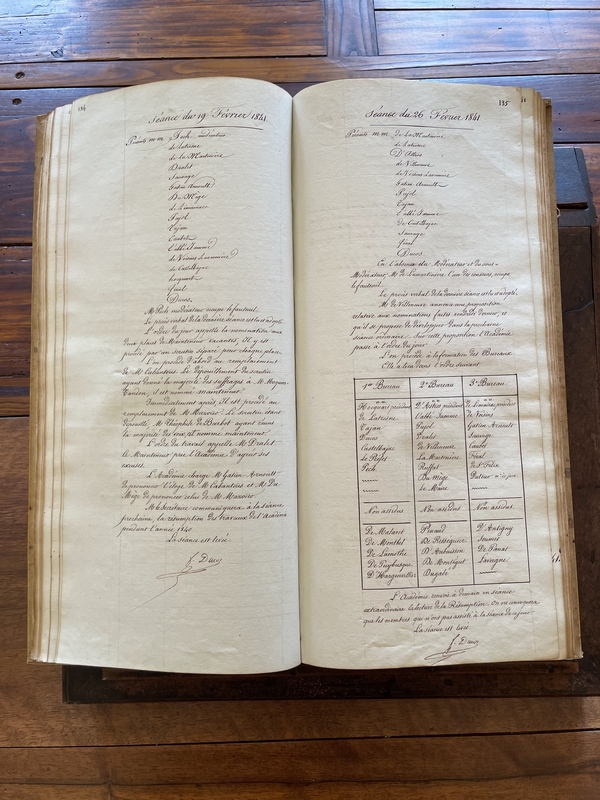 134
Séance du 19 Février 1841
Présents MM. Pech modérateur
de Latresne
de la Martinière
Dralet
Sauvage
Gatien Arnoult
Du Mège
de Limairac
Pujol
Cajan
Caubet
l'abbé Jamme
de Voisins Lavernière
de Castelbajac
hocquart
féral
Ducos
Mr Pech modérateur occupe le fauteuil.
Le procès verbal de la dernière séance est lu et adopté.
L'ordre du jour appelle la nomination aux
deux places de Mainteneur vacantes. Il y est
procédé par un scrutin séparé pour chaque place.
L'on procède d'abord au remplacement
de Mr Cabantous. Le dépouillement du scrutin
ayant donné la majorité des suffrages à Mr
il est nommé mainteneur.
Immédiatement après, il est procédé au
remplacement de Mr. Le scrutin étant
dépouillé, Mr Théophile de Barbot ayant réuni
la majorité des voix, est nommé mainteneur.
L'ordre de travail appelle Mr Dralet
le Mainteneur prie l'Académie d'agréer ses
excuses.
L'Académie charge Mr Gatien Arnoult
de prononcer l'éloge de Mr Cabantous et Mr Du
Mège de prononcer celui de Mr
Mr le Secrétaire communiquera à la séance
prochaine, la résumption des travaux de l'Académie
pendant l'année 1840.
La Séance est levée.
f. Ducos
135
Séance du 26 Février 1841
Présents MM. de la Martinière
de Latresne
D'Athos
de Villeneuve
de Voisins Lavernière
Gatien Arnoult
Pujol
Cajan
l'abbé Jamme
de Castelbajac
Sauvage
féral
Ducos
En l'absence du Modérateur et du sous-
Modérateur, Mr de Lamartinière l'un des censeurs, occupe
le fauteuil.
Le procès verbal de la dernière séance est lu et adopté.
Mr de Villeneuve annonce une proposition
relative aux nominations faites
qu'il se propose de développer dans la prochaine
séance ordinaire. Sur cette proposition l'Académie
passe à l'ordre du jour.
L'on procède à la formation des Bureaux.
Elle a lieu dans l'ordre suivant
1er Bureau 2e Bureau 3e Bureau
MM MM MM
Hocquart président D'Athos président de Limairac président
de Latresne l'abbé Jamme de Voisins
Cajan Pujol Gatien Arnoult
Ducos Dralet Sauvage
Castelbajac de Villeneuve Caubet
La Martinière Féral
Pech Ruffat de St Félix
Du Mège
Le Maire
Non assidus Non assidus Non assidus
De Malaret Pinaud D'Antigny
De Montbel De Rességuier Soumet
De Lamothe D'Aubuisson De Panat
De Puybusque De Montégut Lavergne
D'Hargenvillier Dugabé
L'Académie renvoie à demain en séance
extraordinaire la lecture de la Rédemption. On ne convoquera
que les membres qui n'ont pas assisté à la séance de ce jour.
La séance est levée.
f. Ducos